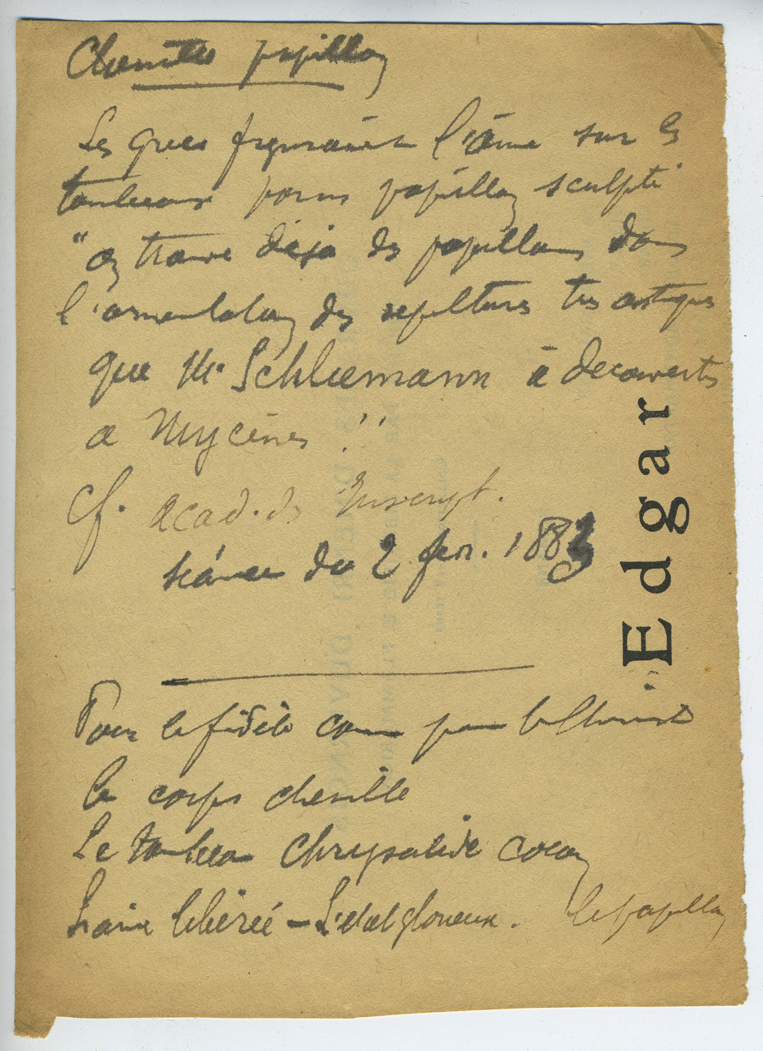 Chenilles papillon
Les grecs figuraient l'âme sur les
tombeaux par un papillon sculpté
"On trouve déjà des papillons dans
l'ornementation des sépultures très antiques
que Mr Schliemann a découvertes
a Mycènes"
cf. Acad. des Inscript.
séance du 2 fev. 1883
Pour le fidèle comme pour le Christ
le corps chenille
Le tombeau chrysalide cocon
L'âme libérée – L'état glorieux. le papillon
Edgar